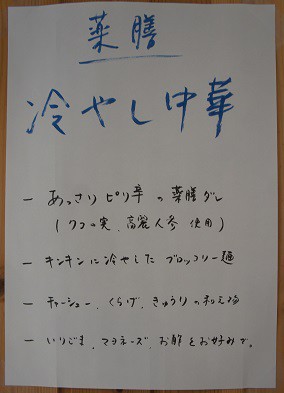 薬膳
冷やし中華
ー あっさりピリ辛の薬膳ダレ
(クコの実、高麗人参 使用)
ー キンキンに冷やした ブロッコリー麺
ー チャーシュー、くらげ、きゅうりの和え物
ー いりごま、マヨネーズ、お酢をお好みで。